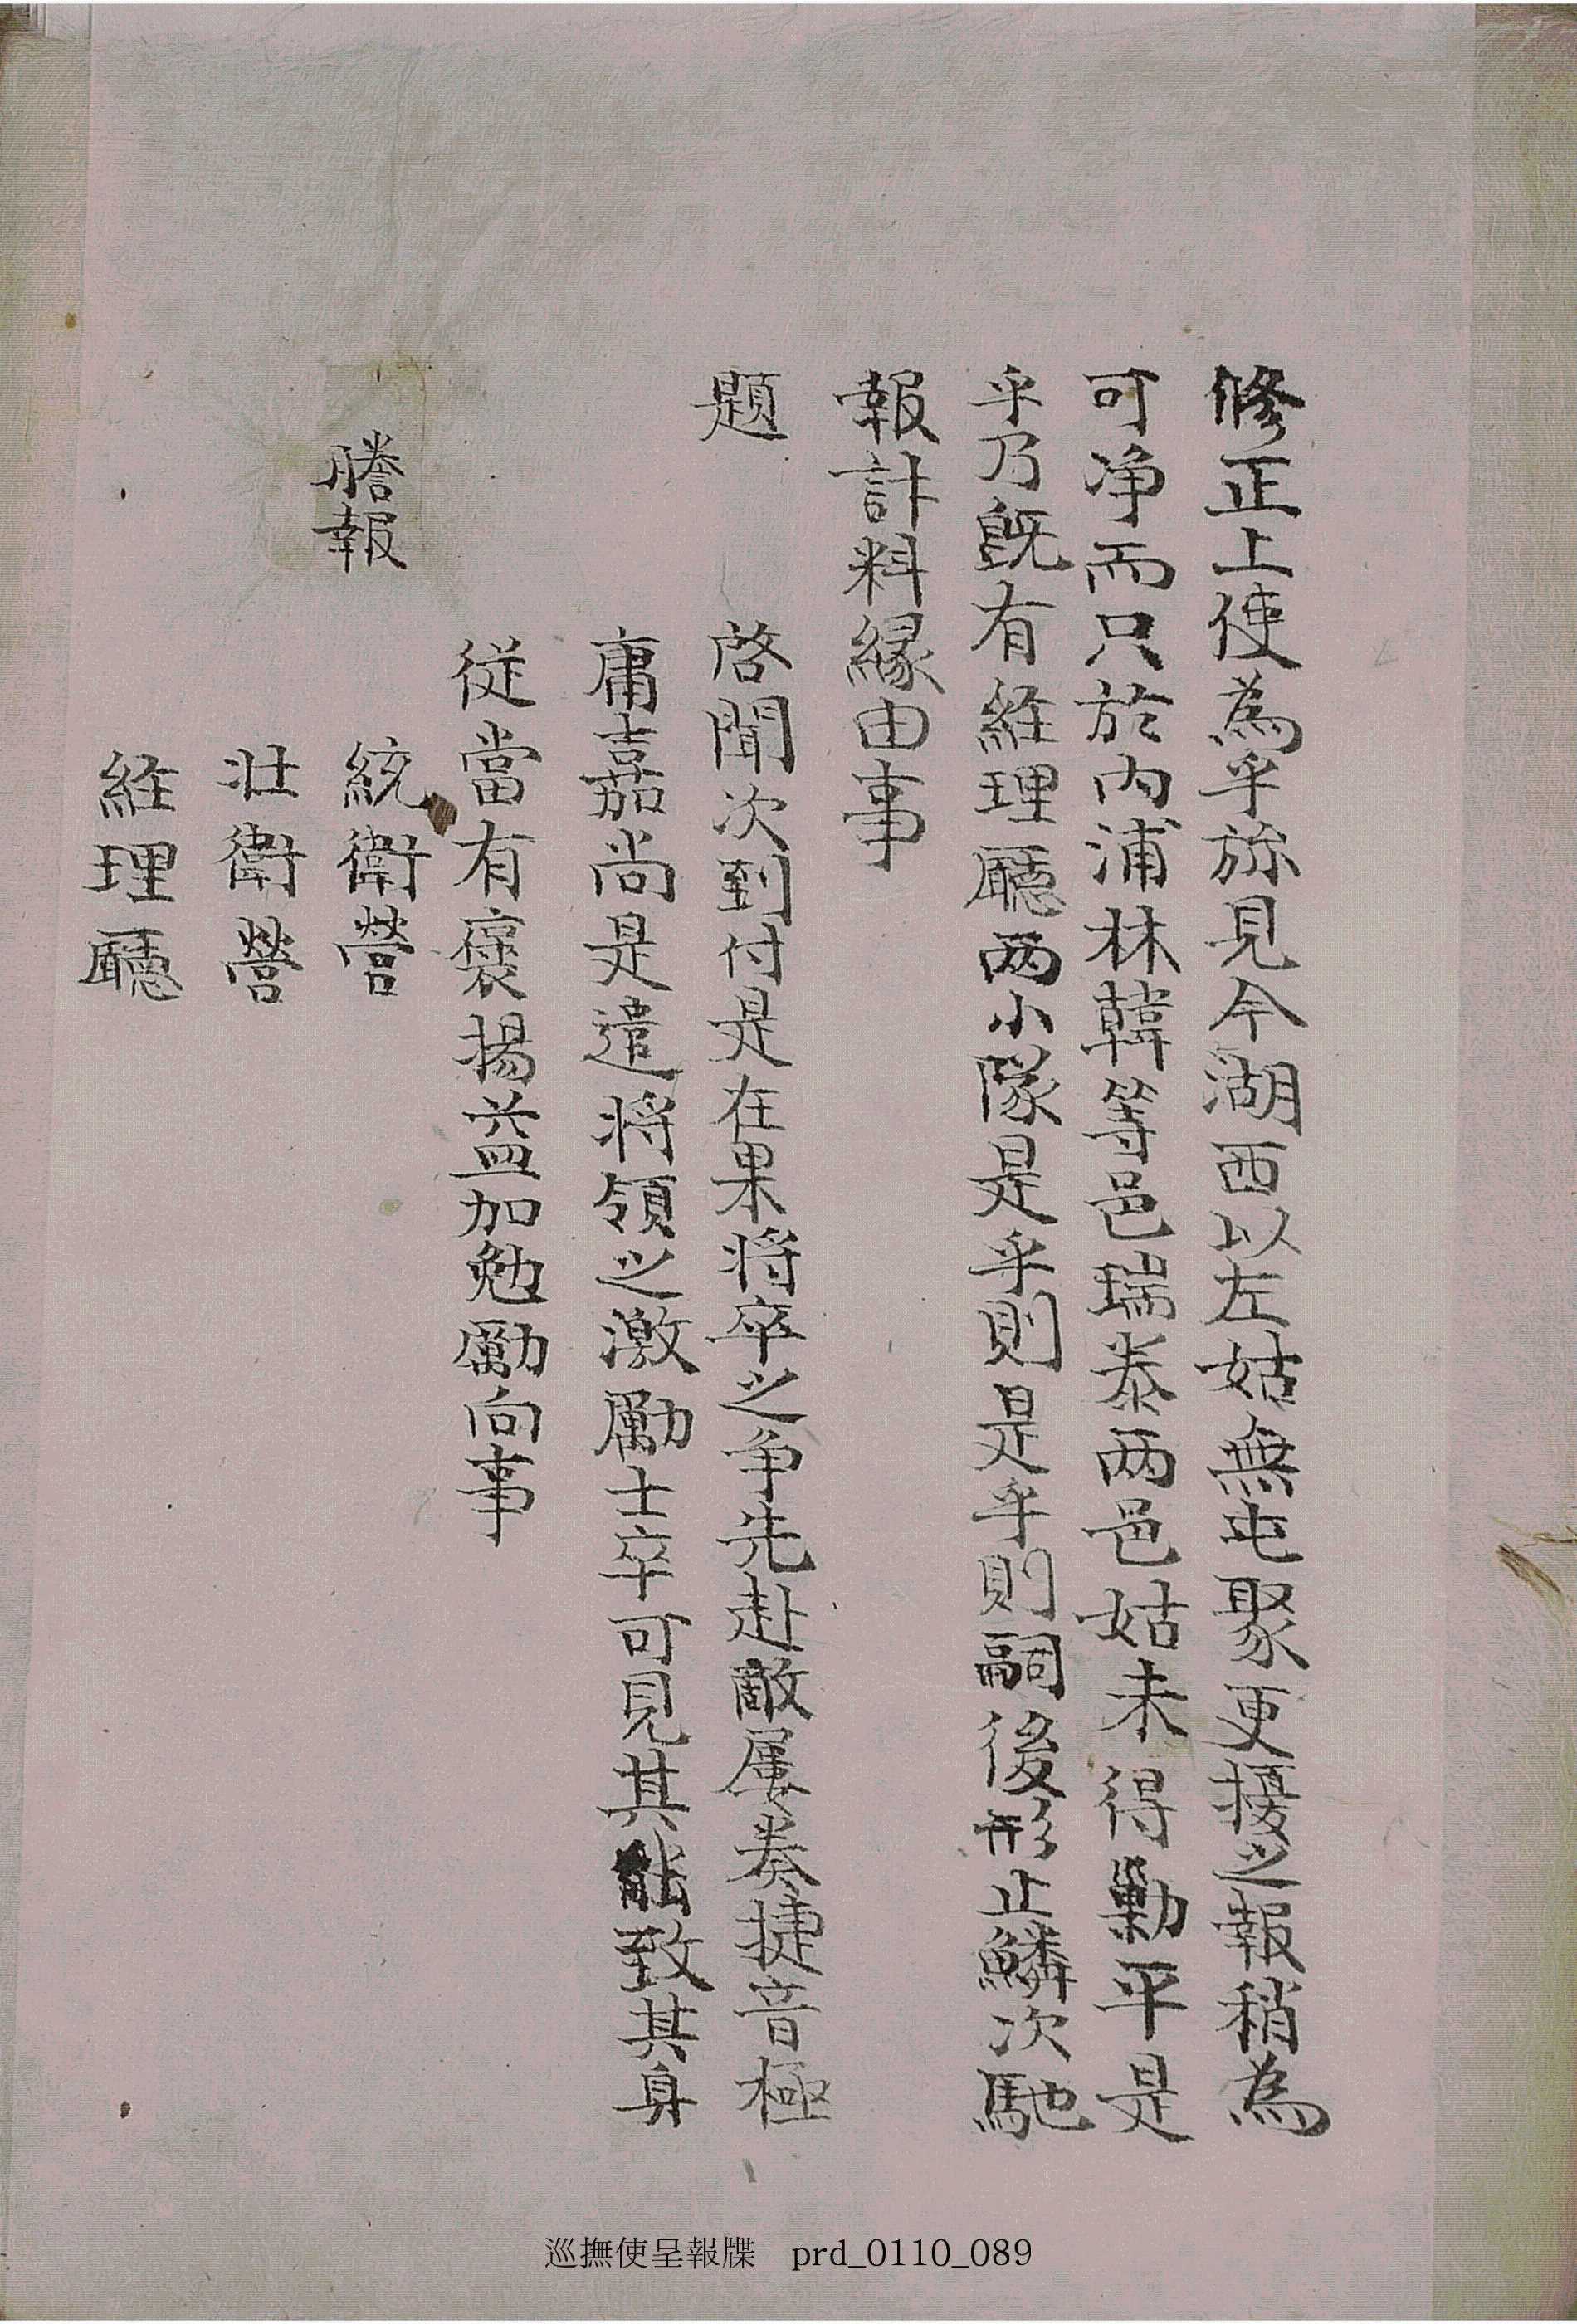 修正上使爲乎旀見今湖西以左姑無屯聚更擾之報稍爲
可净而只於內浦林韓等邑瑞泰两邑姑未得勦平是
乎乃既有經理廳两小隊是乎則是乎則嗣後形止鱗次馳
報計料緣由事
題 啓聞次到付是在果將卒之爭先赴敵屢奏捷音極
庸嘉尚是遣將領之激勵士卒可見其能致其身
從當有褒揚益加勉勵向事
謄報 統衛營
壯衛營
經理廳
巡撫使呈報牒 prd_0110_089